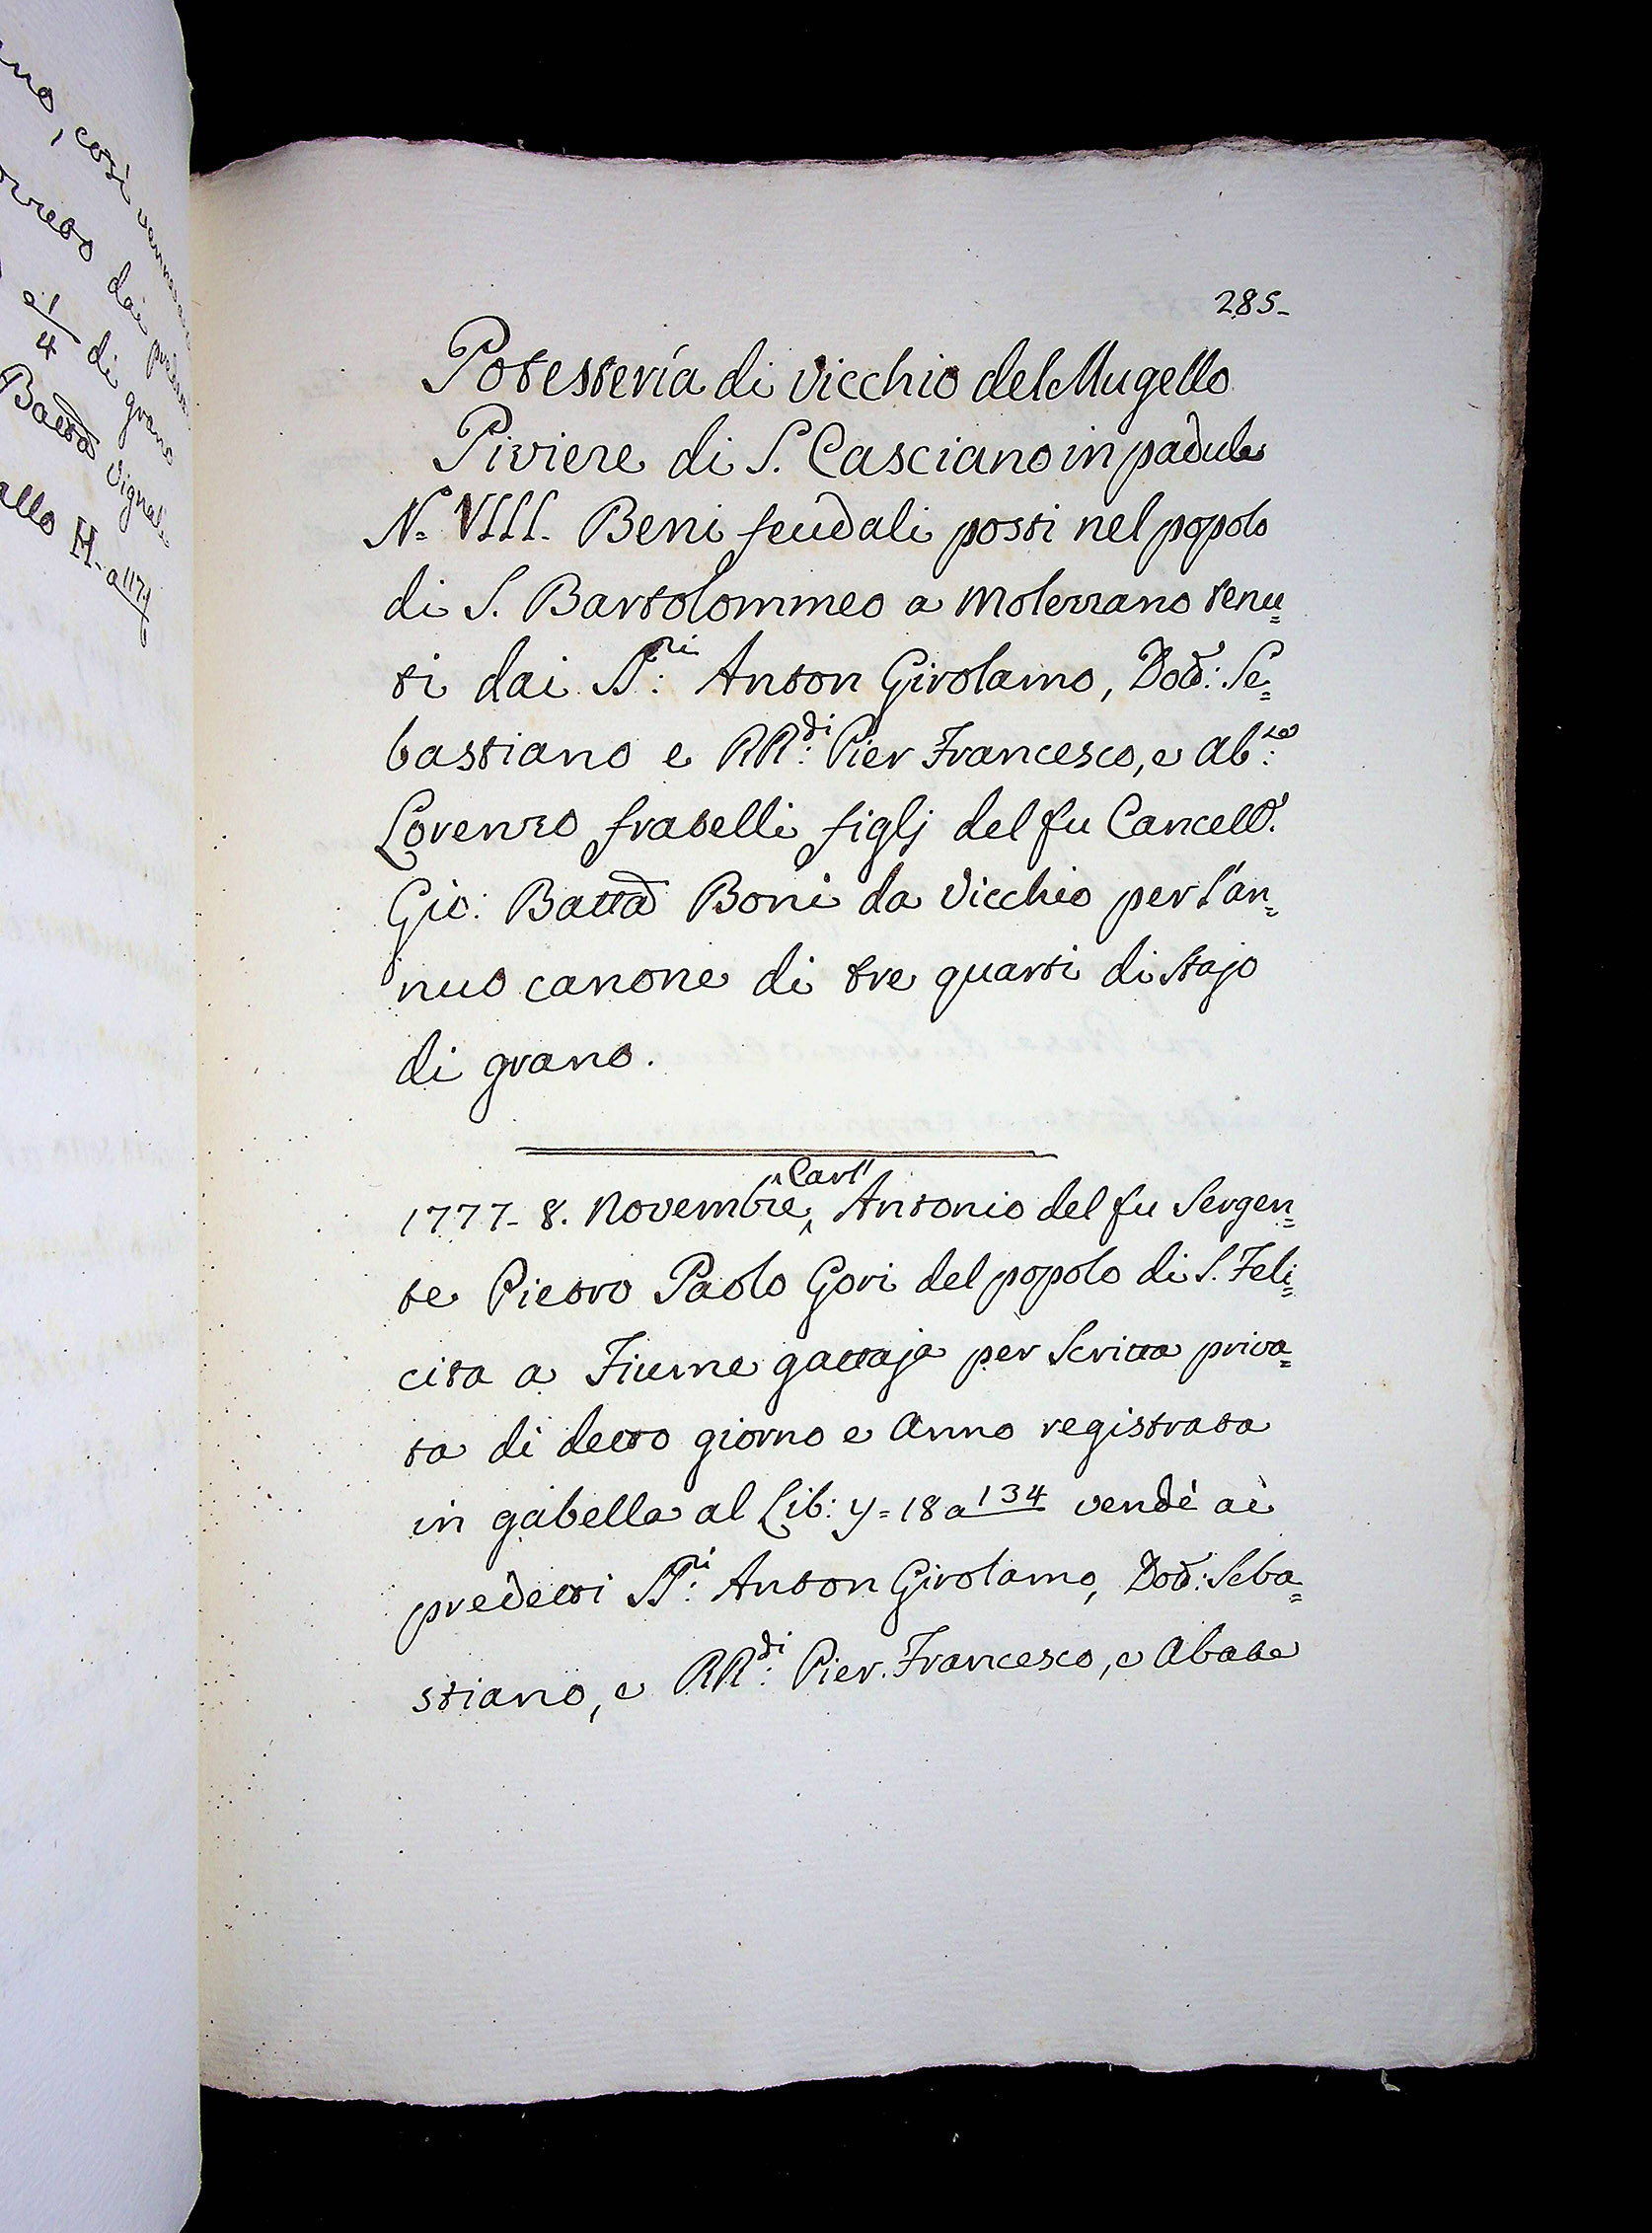 uno, così
dai
1/4 di grano
Batta Vignali
allo H- a 117
285-
Potesteria di Vicchio del Mugello
Piviere di S. Casciano in padule
N.º VIII. Beni feudali posti nel popolo
di S. Bartolommeo a Molezzano tenu=
ti dai SS:ri Anton Girolamo, Dott: Se=
bastiano e RR:di Pier Francesco, e Ab:te
Lorenzo fratelli figlj del fu Cancell.
Gio: Batta Boni da Vicchio per l'an=
nuo canone di tre quarti di stajo
di grano.
Carl'
1777- 8. Novembre, Antonio del fu Sergen=
te Pietro Paolo Gori del popolo di S. Feli=
cita a Fiume gattaja per Scritta priva=
ta di detto giorno e Anno registrata
in gabella al Lib: y= 18 a 134 vendè ai
predetti SS:ri Anton Girolamo, Dott: Seba=
stiano, e RR:di Pier. Francesco, e Abate